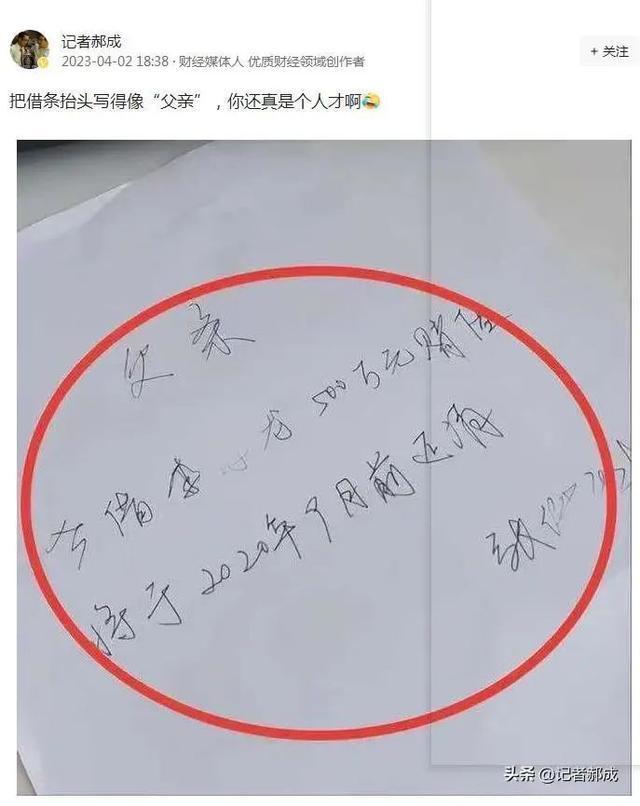 记者郝成
2023-04-02 18:38 · 财经媒体人 优质财经领域创作者
+ 关注
把借条抬头写得像“父亲”，你还真是个人才啊
今借李 龙500万元赌
将于2020年9月前还清
头条 @记者郝成